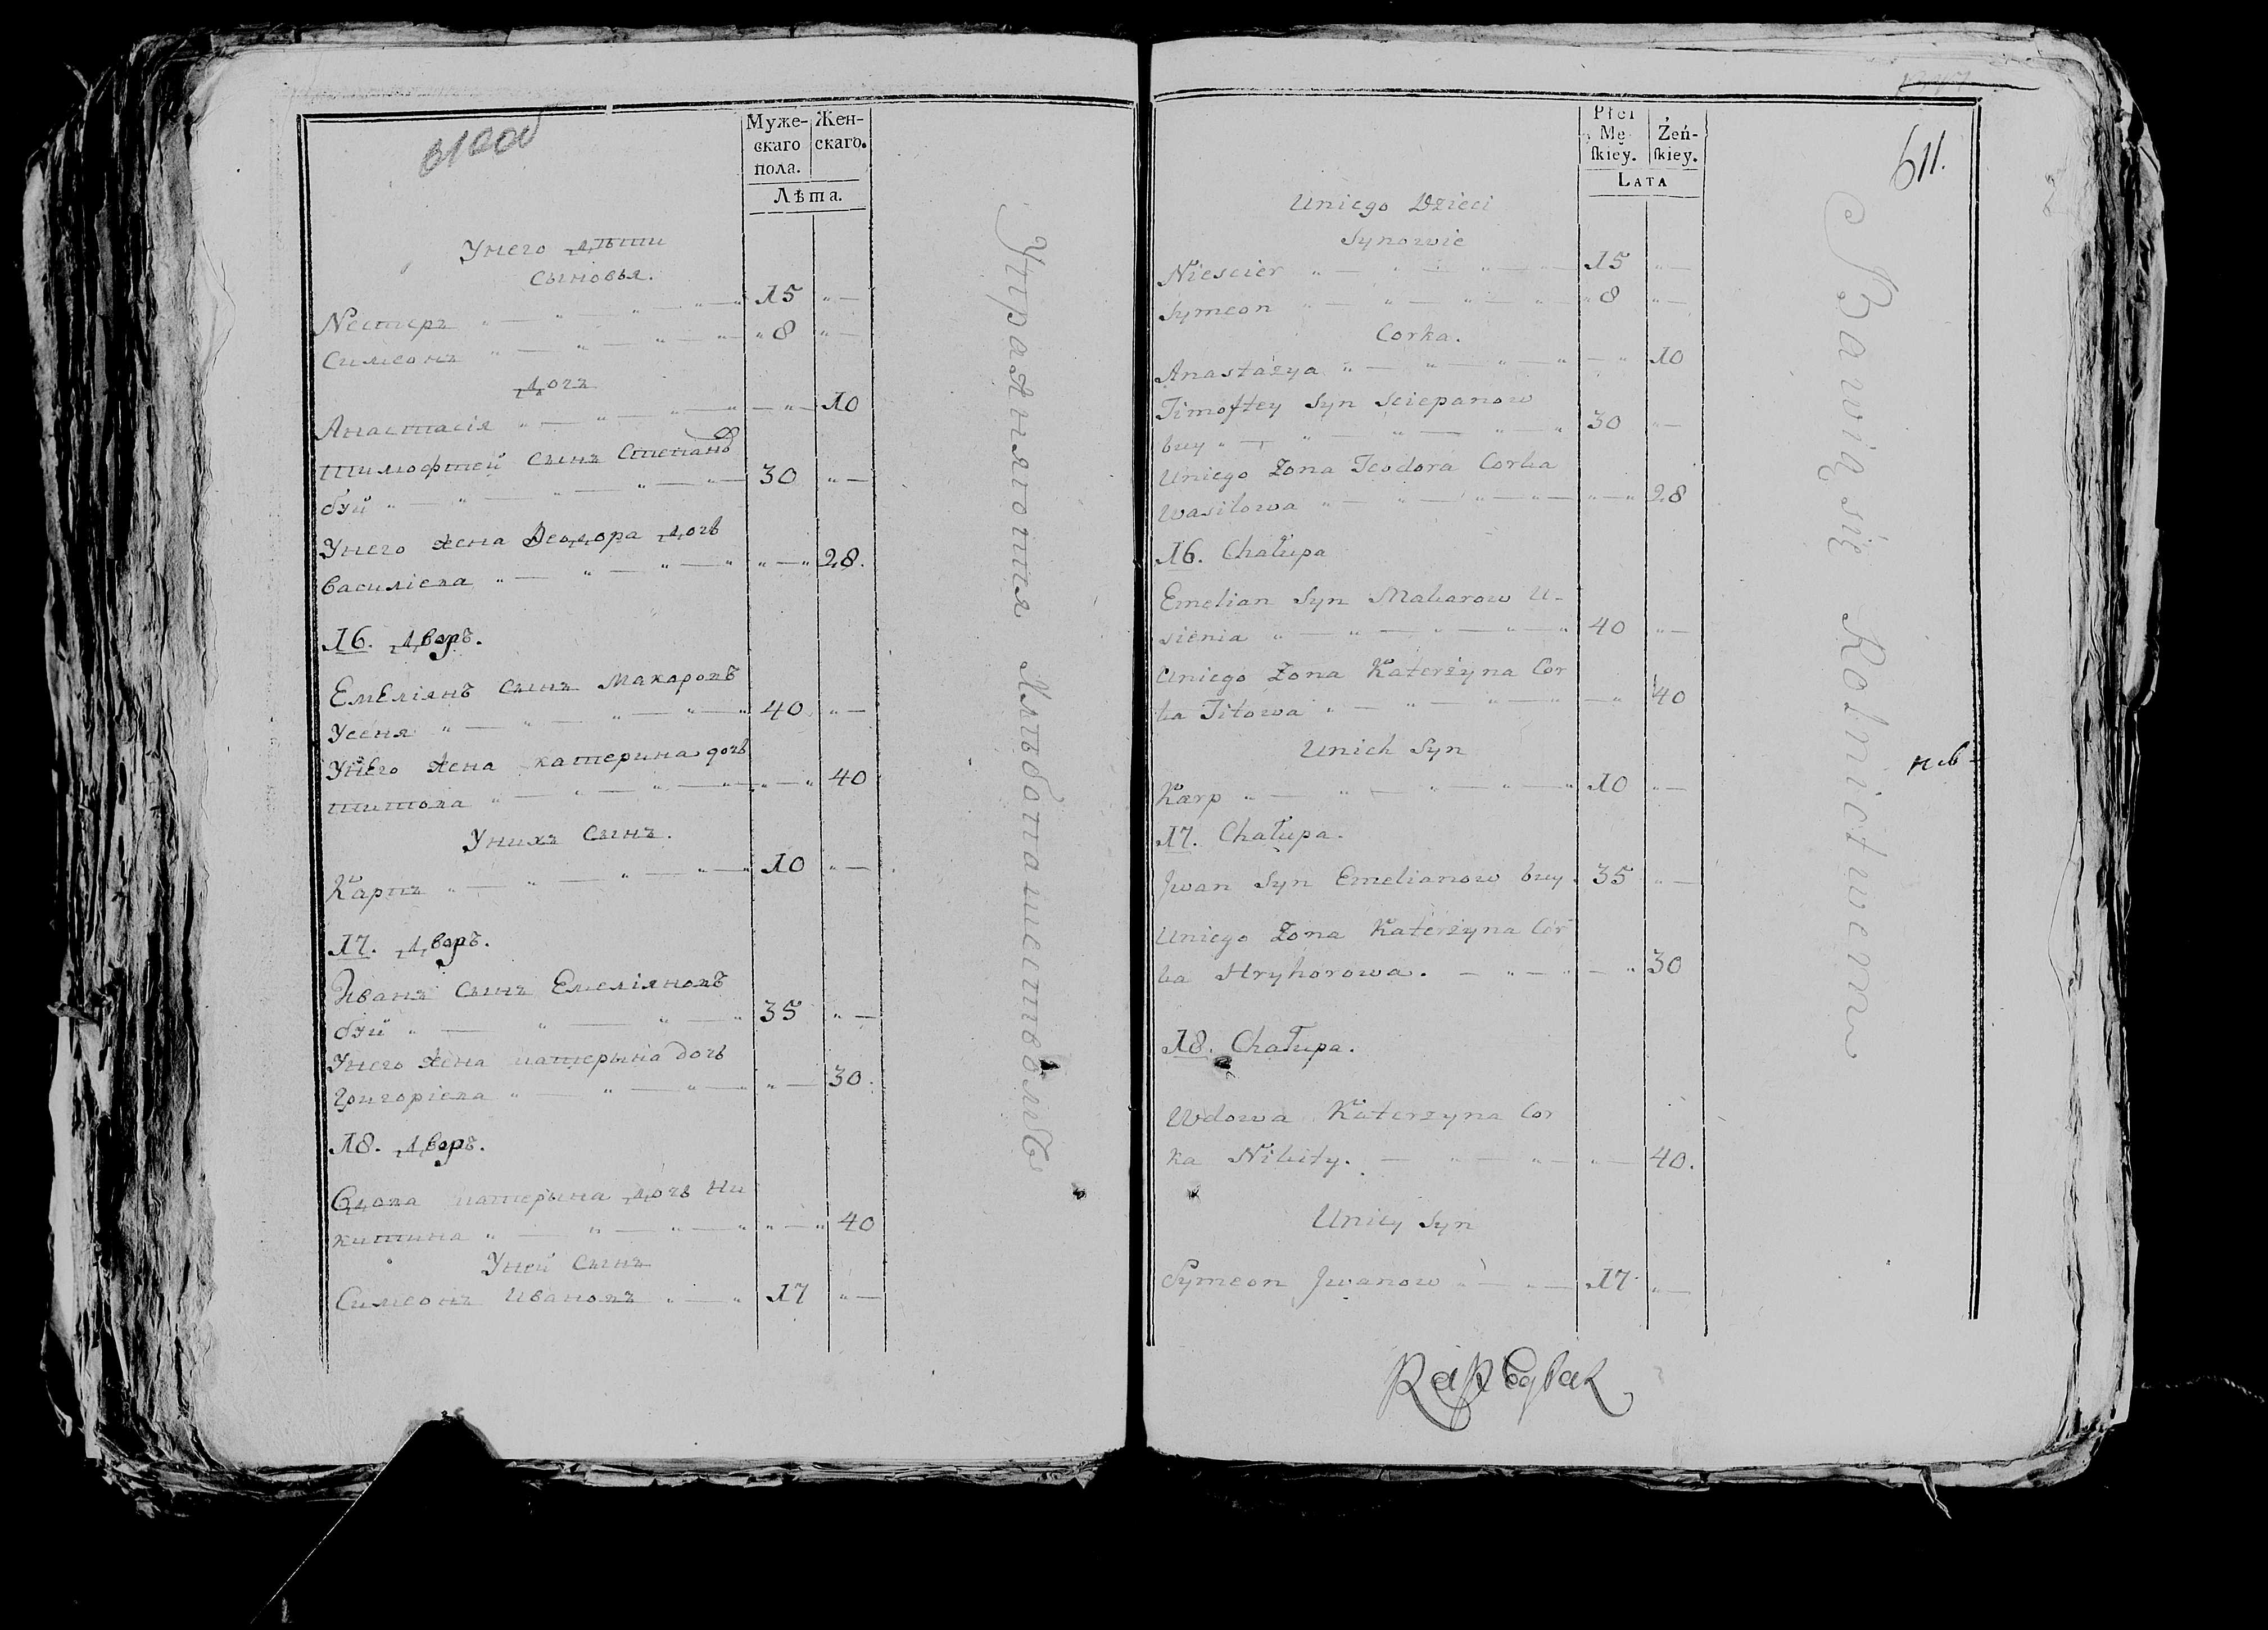 Муже-
скаго
пола.
Жен-
скаго.
Лѣта.
Унего дѣти
Сыновья.
Нестеръ " — " — " — " — 15 " —
Симеонъ " — " — " — " — " 8 " —
дочъ
Анастасія " — " — " — " — " — 10
Тимофтей Сынъ Степано
буй " — " — " — " — 30 " —
Унего жена Ѳеодора дочь
Василіева " — " — " — " " — " 28.
16. дворъ.
Емеліянъ Сынъ Макаровъ
Усеня " — " — " — " — " 40 " —
Унего жена катерина дочь
Титова " — " — " — " — " 40
Унихъ Сынъ.
Карпъ " — " — " — " — " 10 " —
17. дворъ.
Иванъ Сынъ Емеліяновъ
буй " — " — " — " 35 " —
Унего жена катерына дочь
Григоріева " — " — " — " — 30.
18. дворъ.
Вдова катерына дочь Ни
китина " — " — " — " " — " 40
Уней Сынъ
Симеонъ Ивановъ " — " 17 " —
Управляются Хлѣбопашествомъ
Płci
Mę-
skiey.
Żeń-
skiey.
LATA
611.
Uniego Dzieci
Synowie
Niescier " — " — " — " — 15 " —
Symeon " — " — " — " — " 8 " —
Corka.
Anastazya " — " — " — " — " 10
Timoftey Syn Sciepanow
buy " — " — " — " — " 30 " —
Uniego Żona Teodora Corka
Wasilowa " — " — " — " — " — " 28
16. Chałupa
Emelian Syn Makarow U-
sienia " — " — " — " — " 40 " —
Uniego Żona Katerżyna Cor
ka Titowa " — " — " — " — " 40
Unich Syn
Karp " — " — " — " — " 10 " —
17. Chałupa.
Jwan Syn Emelianow buy. 35 " —
Uniego Żona Katerżyna Cor
ka Hryhorowa. — " — " — " 30
18. Chałupa.
Wdowa Katerzyna Cor
ka Nikity. — " — " — " — 40.
Uniey Syn
Symeon Jwanow " — " — 17 " —
Bawią się Rolnictwem